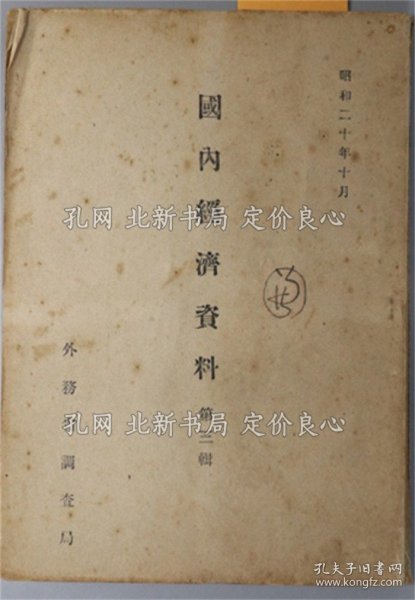 昭和二十年十月
國內經濟資料 第三輯
外務省調査局
孔网 北新书局 定价良心
孔网 北新书局 定价良心
孔网 北新书局 定价良心
孔夫子旧书网
book.kongfz.com